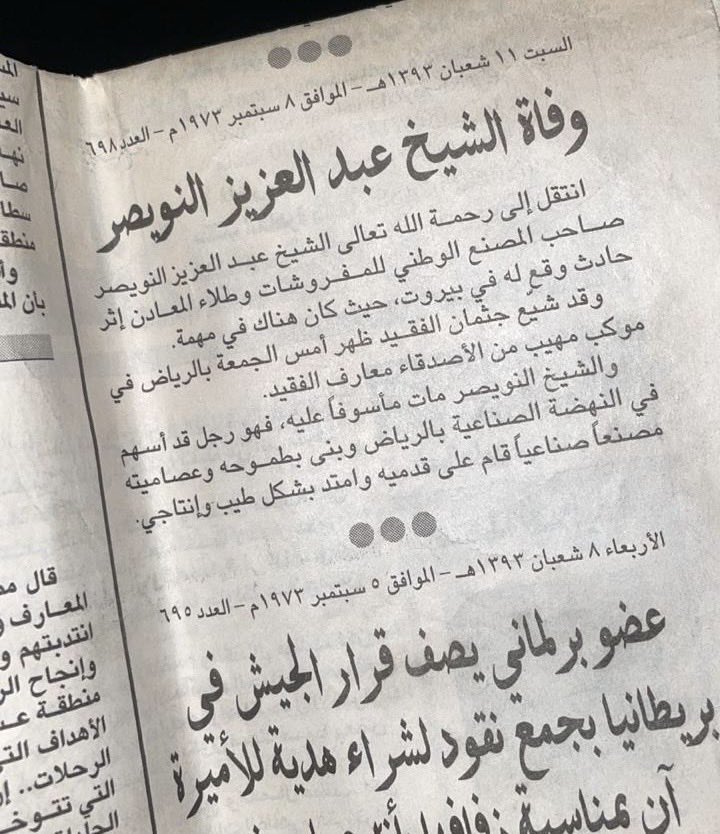 السبت ١١ شعبان ١٣٩٣هـ - الموافق ٨ سبتمبر ١٩٧٣م - العدد ٦٩٨
وفاة الشيخ عبد العزيز النويصر
انتقل إلى رحمة الله تعالى الشيخ عبد العزيز النويصر
صاحب المصنع الوطني للمفروشات وطلاء المعادن إثر
حادث وقع له في بيروت، حيث كان هناك في مهمة.
وقد شيّع جثمان الفقيد ظهر أمس الجمعة بالرياض في
موكب مهيب من الأصدقاء معارف الفقيد.
والشيخ النويصر مات مأسوفاً عليه، فهو رجل قد أسهم
في النهضة الصناعية بالرياض وبنى بطموحه وعصاميته
مصنعاً صناعياً قام على قدميه وامتد بشكل طيب وإنتاجي.
الأربعاء ٨ شعبان ١٣٩٣هـ - الموافق ٥ سبتمبر ١٩٧٣م - العدد ٦٩٥
عضو برلماني يصف قرار الجيش في
بريطانيا بجمع نقود لشراء هدية للأميرة
آن بمناسبة زفافها
منطقة
وأ
بان
قال
المعارف و
انتدبتهم و
وإنجاح
منطقة
الأهداف
الرحلات..
التي